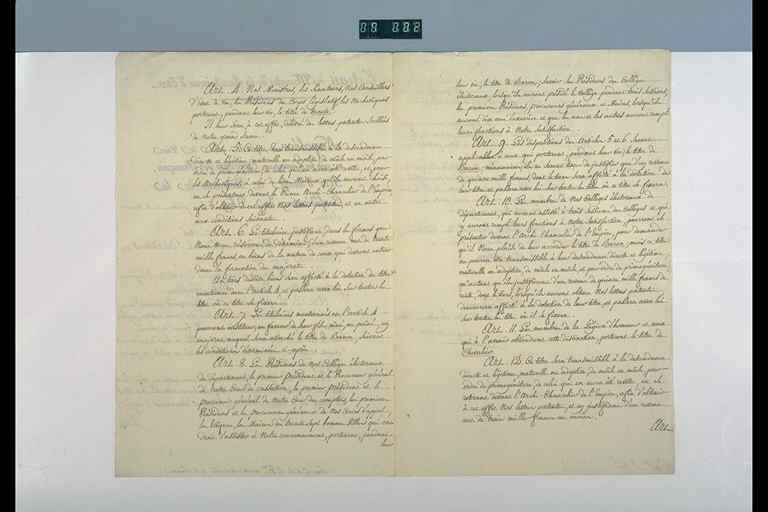 Art. 4. Nos Ministres, les Sénateurs, Nos Conseillers
d'état à vie, les Présidens du Corps législatif, les Archevêques
porteront, pendant leur vie, le titre de Comte.
Il leur sera, à cet effet, délivré des lettres patentes, scellées
de notre grand sceau.
Art. 5. Ce titre sera transmissible à la descendance
directe et légitime, naturelle ou adoptive de mâle en mâle, par
ordre de primogéniture, de celui qui en aura été revêtu, et, pour
les Archevêques, à celui de leurs Neveux qu'ils auront choisi,
en se présentant devant le Prince Archi-Chancelier de l'Empire,
afin d'obtenir à cet effet Nos lettres patentes, et en outre
aux conditions suivantes.
Art. 6. Le titulaire justifiera, dans les formes que
Nous Nous réservons de déterminer, d'un revenu net de trente
mille francs, en biens de la nature de ceux qui devront entrer
dans la formation des majorats.
Un tiers desdits biens sera affecté à la dotation du titre
mentionné dans l'article 4, et passera avec lui sur toutes les
têtes où ce titre se fixera.
Art. 7. Les titulaires mentionnés en l'article 4
pourront instituer, en faveur de leur fils aîné ou puîné, un
majorat, auquel sera attaché le titre de Baron, suivant
les conditions déterminées ci-après.
Art. 8. Les Présidens de Nos Collèges électoraux
de département, le premier président et le Procureur général
de Notre Cour de cassation, le premier président et le
procureur général de Notre Cour des comptes, les premiers
Présidens et les procureurs généraux de Nos Cours d'appel,
les Evêques, les Maires des trente sept bonnes Villes qui ont
droit d'assister à Notre couronnement, porteront, pendant
leur
leur vie, le titre de Baron; savoir: les Présidens des Collèges
électoraux, lorsqu'ils auront présidé le Collège pendant trois sessions;
les premiers Présidens, procureurs généraux et Maires, lorsqu'ils
auront dix ans d'exercice et que les uns et les autres auront rempli
leurs fonctions à Notre satisfaction.
Art. 9. Les dispositions des Articles 5 et 6 seront
applicables à ceux qui porteront, pendant leur vie, le titre de
Baron; néanmoins, ils ne seront tenus de justifier que d'un revenu
de quinze mille francs, dont le tiers sera affecté à la dotation de
leur titre, et passera avec lui sur toutes les têtes où ce titre se fixera.
Art. 10. Les membres de Nos Collèges électoraux de
départemens, qui auront assisté à trois sessions des Collèges, et qui
y auront rempli leurs fonctions à Notre satisfaction, pourront se
présenter devant l'Archi-Chancelier de l'Empire, pour demander
qu'il Nous plaise de leur accorder le titre de Baron; mais ce titre
ne pourra être transmissible à leur descendance directe et légitime,
naturelle ou adoptive, de mâle en mâle, et par ordre de primogéniture,
qu'autant qu'ils justifieront d'un revenu de quinze mille francs de
rente, dont le tiers, lorsqu'ils auront obtenu Nos lettres patentes,
demeurera affecté à la dotation de leur titre, et passera avec lui
sur toutes les têtes où il se fixera.
Art. 11. Les membres de la Légion d'honneur, et ceux
qui à l'avenir obtiendront cette distinction, porteront le titre de
Chevalier.
Art. 12. Ce titre sera transmissible à la descendance
directe et légitime, naturelle ou adoptive, de mâle en mâle, par
ordre de primogéniture, de celui qui en aura été revêtu, en se
retirant devant l'Archi-Chancelier de l'Empire, afin d'obtenir
à cet effet Nos lettres patentes, et en justifiant d'un revenu
net de trois mille francs au moins.
Art.